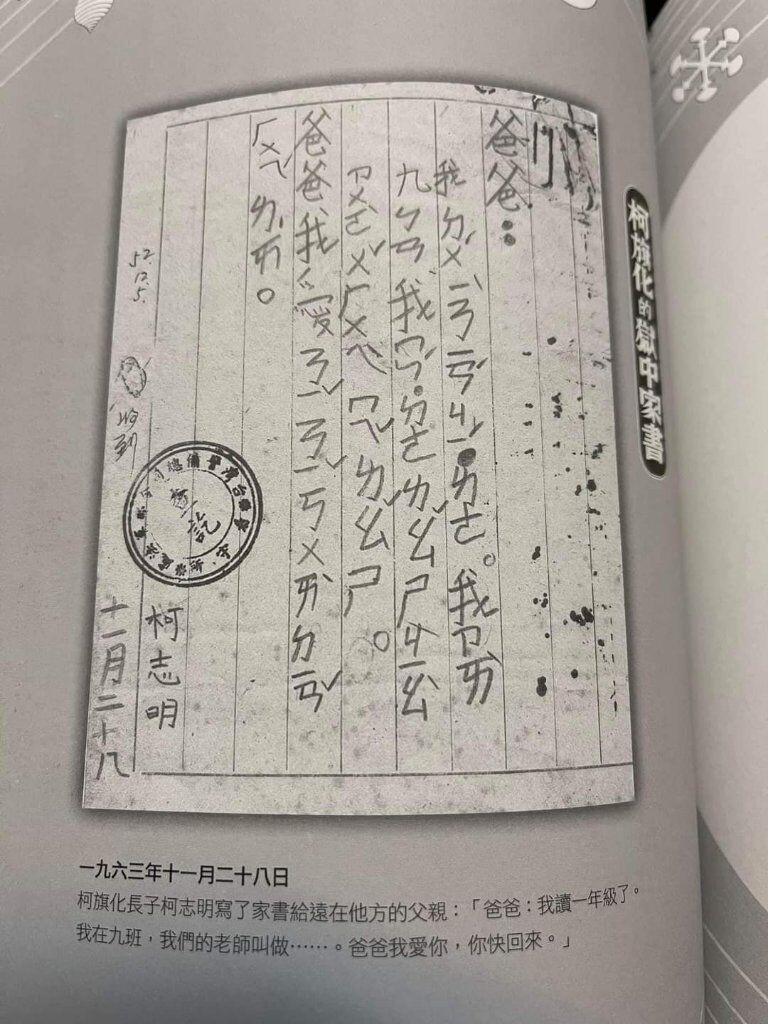 柯旗化的獄中家書
爸爸：
我ㄉㄨˊㄧˋㄋㄧㄢˊㄐㄧˊ˙ㄌㄜ。我ㄗㄞˋ
九ㄅㄢ我ㄇㄣˊ˙ㄉㄜㄌㄠˇㄕㄐㄧㄠˋ
ㄗㄨㄛˋㄨˊㄏㄨㄟˋㄇㄟˇㄌㄠˇㄕ。
爸爸我愛ㄋㄧˇㄋㄧˇㄎㄨㄞˋㄉㄧㄢˇ
ㄏㄨㄟˊㄌㄞˊ。
52.12.5.
收到
柯志明
十一月二十八
一九六三年十一月二十八日
柯旗化長子柯志明寫了家書給遠在他方的父親：「爸爸：我讀一年級了。
我在九班，我們的老師叫做……。爸爸我愛你，你快回來。」